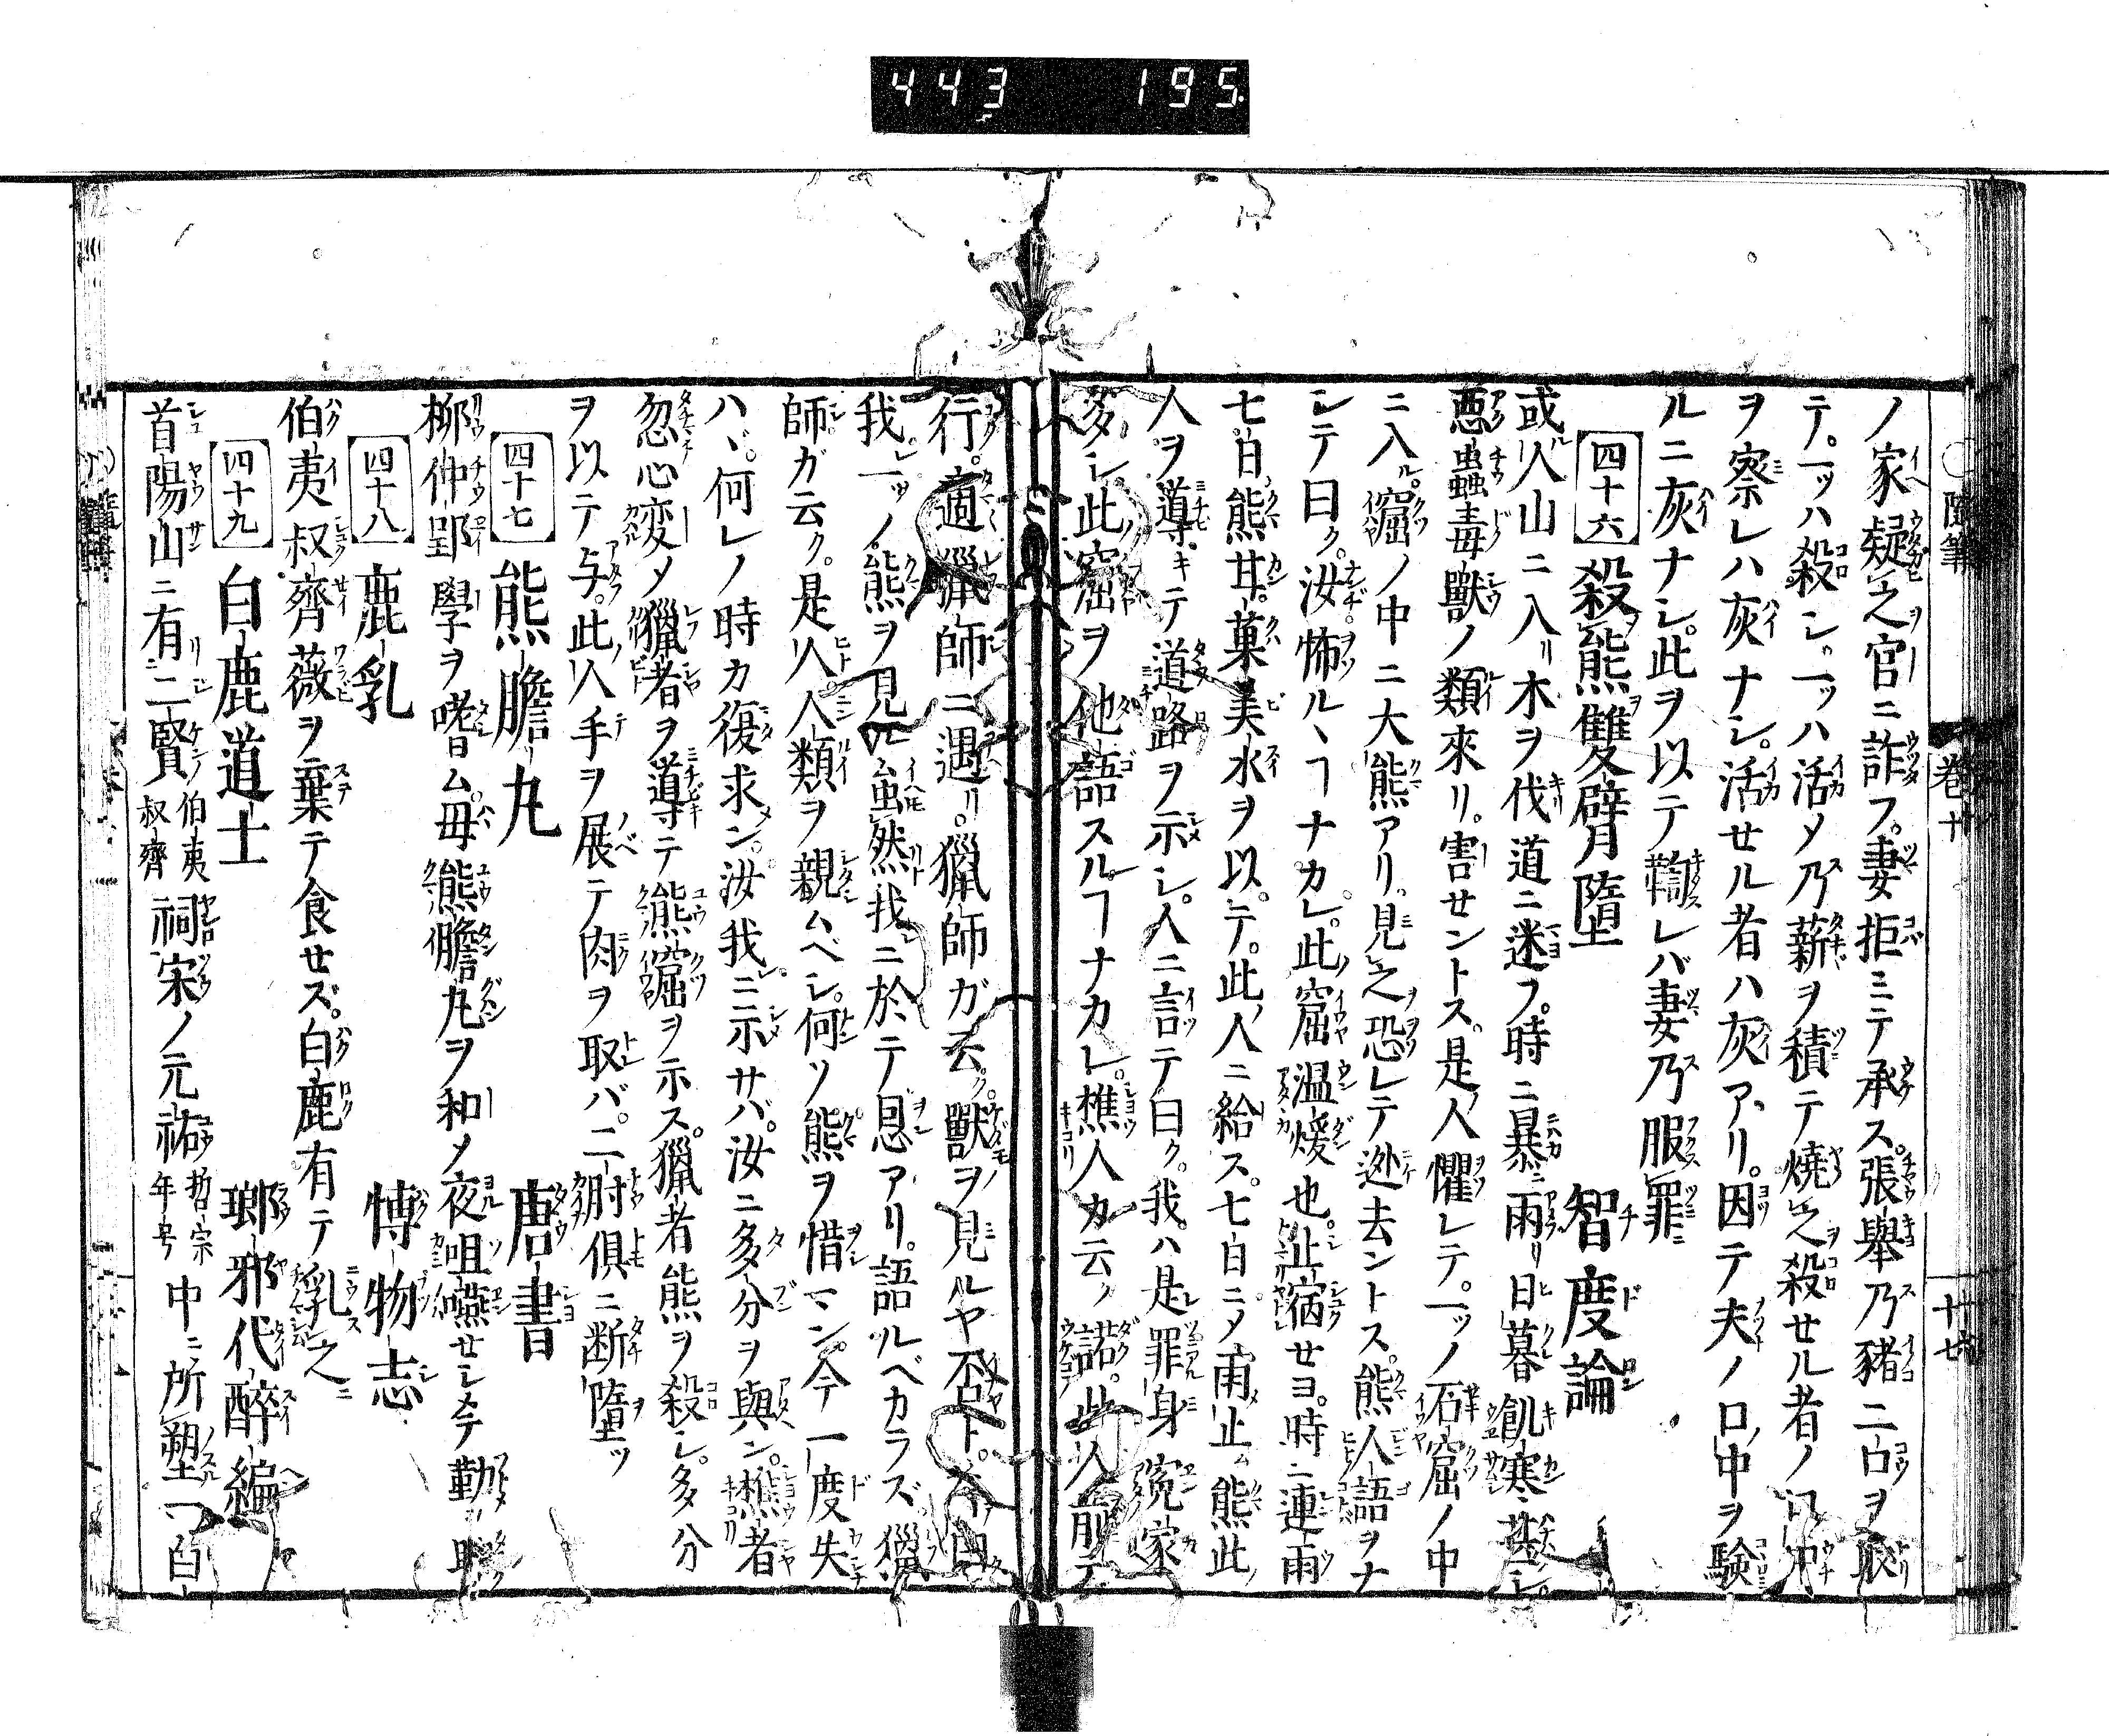 443 195
隨筆 巻十 十七
ノ家疑之官ニ詐フ妻拒ミテ承ス張舉乃豬二口ヲ取
テ一ッハ殺シ一ッハ活メ乃薪ヲ積テ燒之殺セル者ノ口中
ヲ察レハ灰ナシ活セル者ハ灰アリ因テ夫ノ口中ヲ驗
ルニ灰ナシ此ヲ以テ鞫レバ妻乃服罪
四十六 殺熊雙臂墮 智度論
或人山ニ入リ木ヲ伐道ニ迷フ時ニ暴雨リ日暮飢寒
惡蟲毒獸ノ類來リ害セントス是人懼レテ一ッノ石窟ノ中
ニ入ル窟ノ中ニ大熊アリ見之恐レテ迯去ントス熊人語ヲナ
シテ曰ク汝怖ルヽヿナカレ此窟溫煖也止宿セヨ時ニ連雨
七日熊甘菓美水ヲ以テ此人ニ給ス七日ニメ雨止ム熊此
人ヲ導キテ道路ヲ示シ人ニ言テ曰ク我ハ是罪身寃家
多シ此窟ヲ他語スルヿナカレ樵人カ云ク諾此人前テ
行適獵師ニ遇リ獵師ガ云ク獸ヲ見ルヤ否ト答曰
我一ッノ熊ヲ見ル雖然我ニ於テ恩アリ語ルベカラズ獵
師ガ云ク是人人類ヲ親ムベシ何ソ熊ヲ惜マン今一度失
ハヽ何レノ時カ復求ン汝我ニ示サバ汝ニ多分ヲ與ン樵者
忽心変メ獵者ヲ導テ熊窟ヲ示ス獵者熊ヲ殺シ多分
ヲ以テ与此人手ヲ展テ肉ヲ取バ二肘俱ニ断墮ッ
四十七 熊膽丸 唐書
柳仲郢學ヲ嗜ム母熊膽丸ヲ和メ夜咀嚥セシメテ勤ヲ助
四十八 鹿乳 博物志
伯夷叔齊薇ヲ棄テ食セズ白鹿有テ乳之
四十九 白鹿道士 瑯邪代醉編
首陽山ニ有二賢伯夷叔齊祠宋ノ元祐哲宗年号中ニ所塑一白